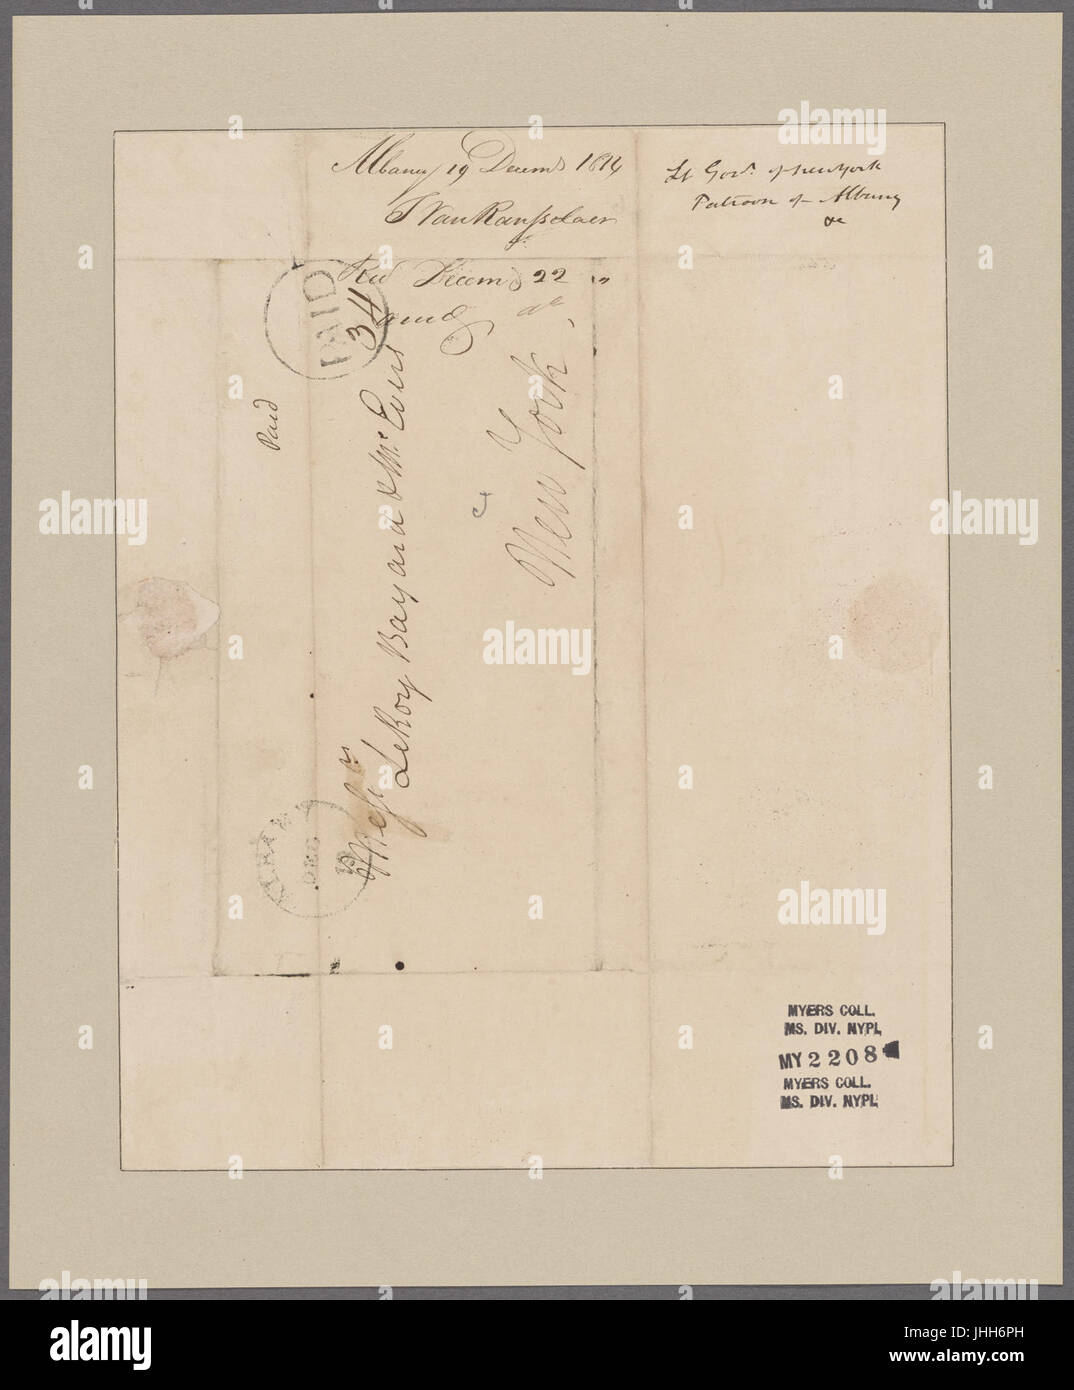 Albany 19 Decemb 1814
S Van Rensselaer
Recd Decemb 22 "
and
Lt Govr. of New York
Patroon of Albany
&c
PAID
34
Paid
Messrs
LeRoy Bayard & McEvers
New York
ALBANY
DEC
19
MYERS COLL.
MS. DIV. NYPL
MY 2208
MYERS COLL.
MS. DIV. NYPL
alamy
alamy
alamy
alamy
alamy
a
alamy
Image ID: JHH6PH
www.alamy.com